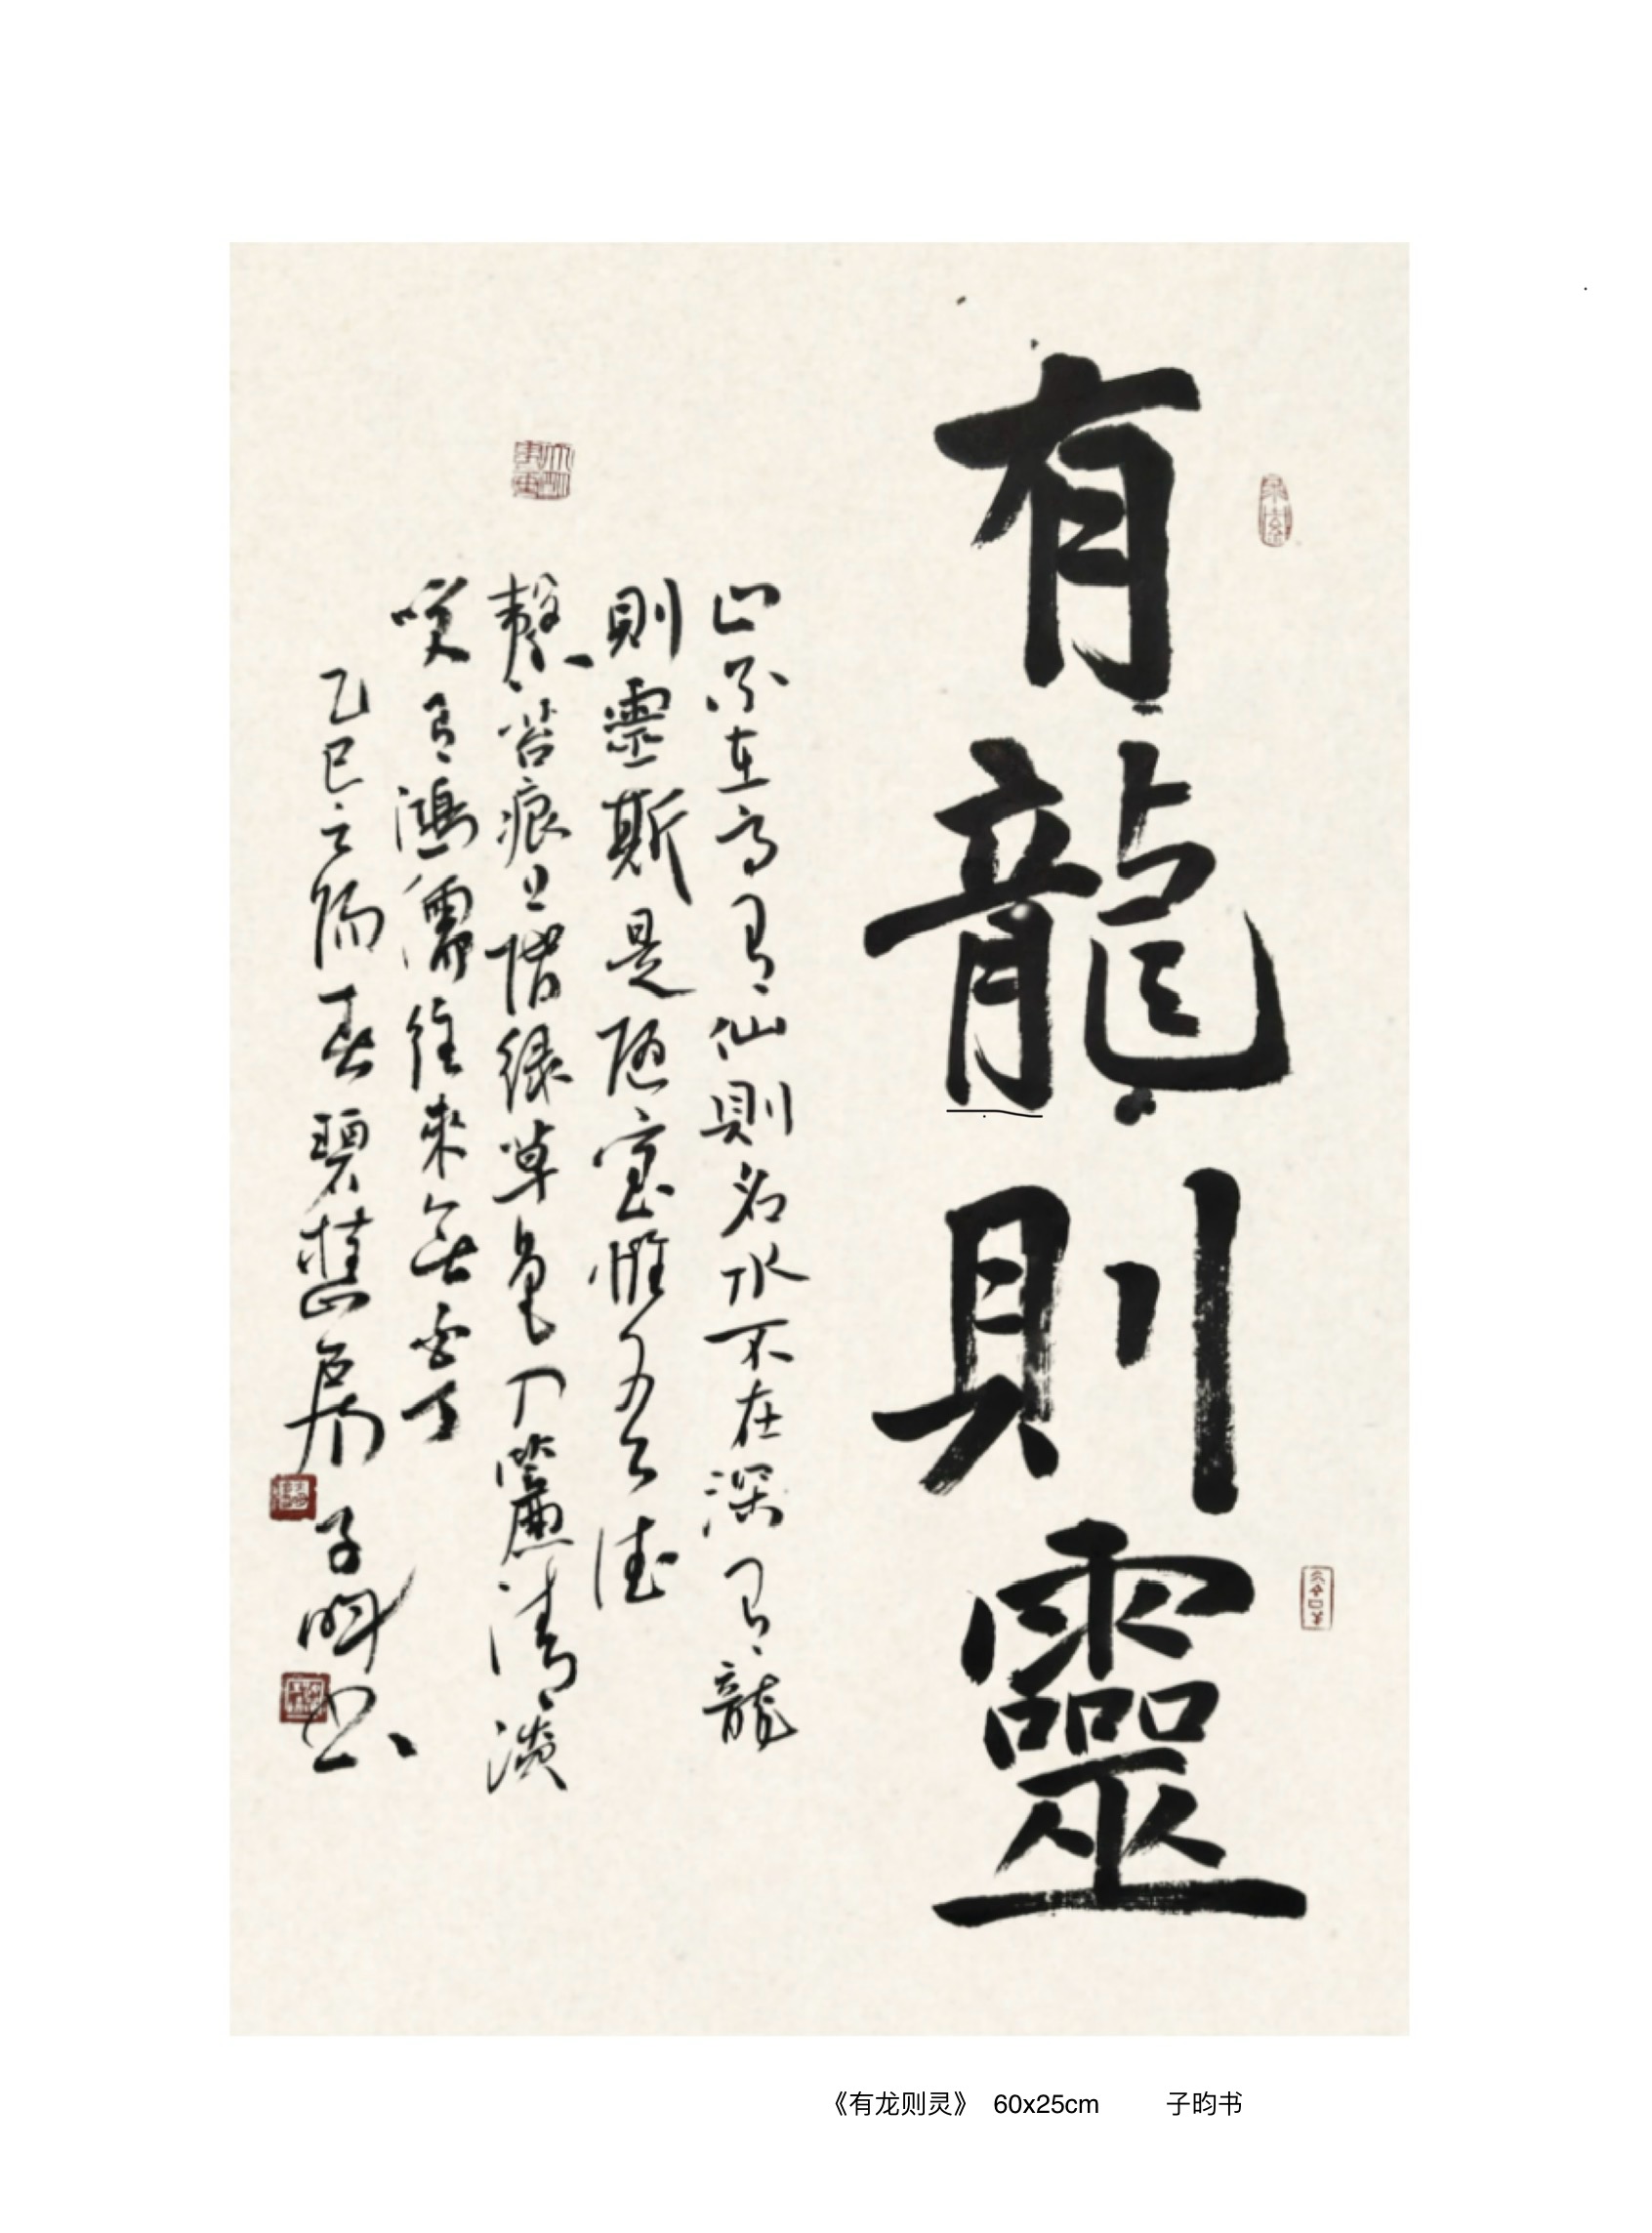 有龍則靈
山不在高有仙則名水不在深有龍
則靈斯是陋室惟吾德
馨苔痕上階綠草色入簾清談
咲有鴻儒往來無白丁
乙巳之陽春碧桂山房子昀书
《有龙则灵》 60x25cm 子昀书